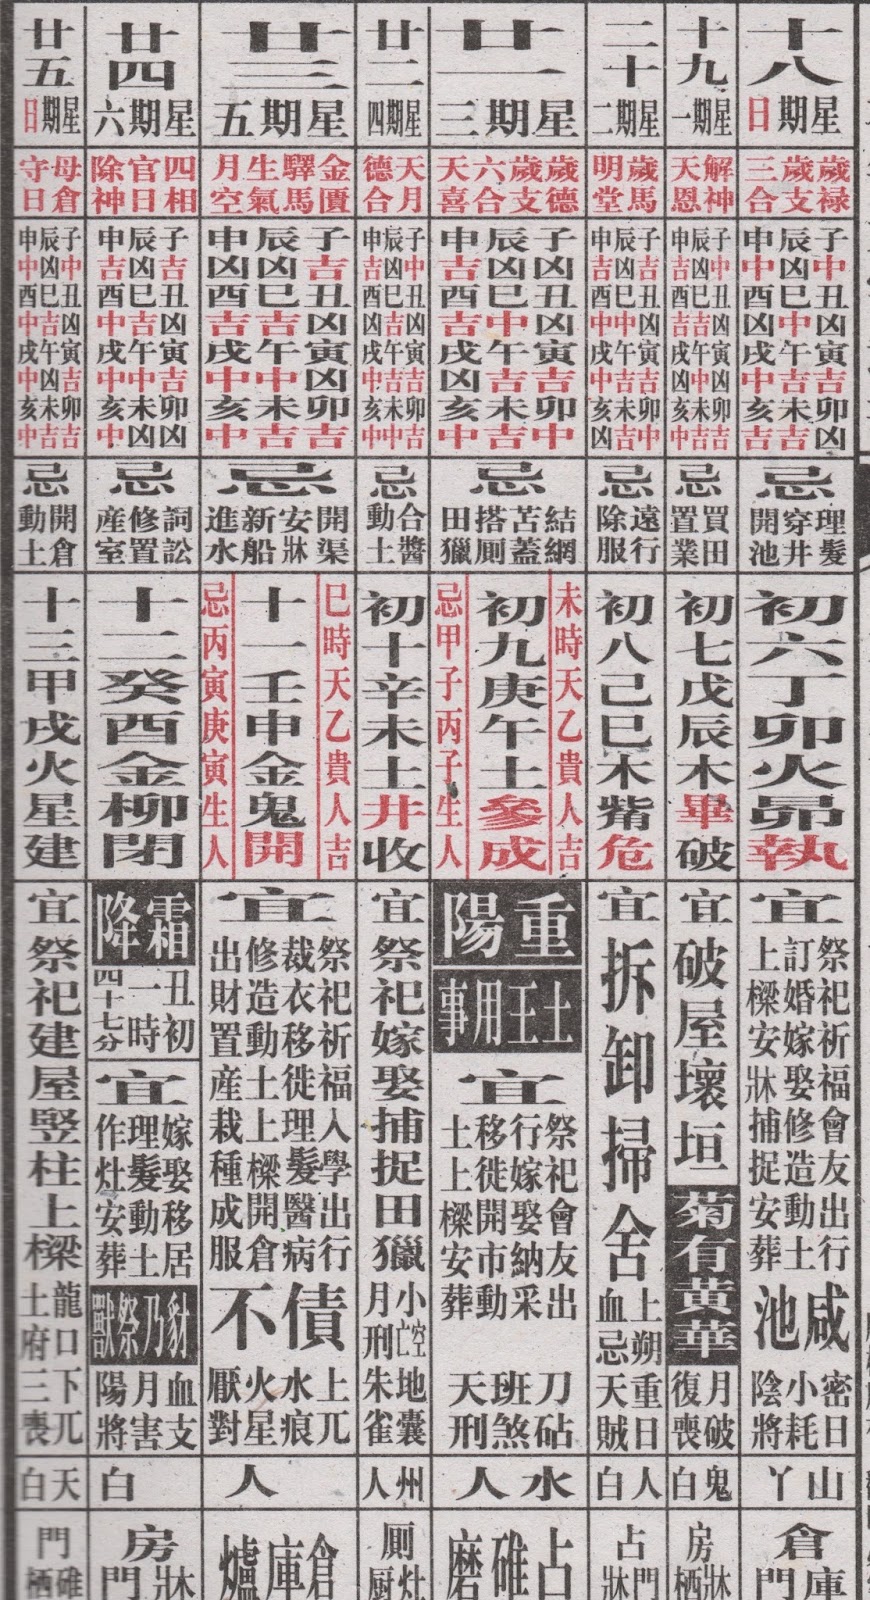 十八
星期日
歲祿 歲支 三合
子中 丑凶 寅吉 卯凶
辰凶 巳中 午吉 未吉
申中 酉凶 戌中 亥吉
忌
理髮 穿井 開池
初六丁卯火昴執
宜
祭祀祈福會友出行
訂婚嫁娶修造動土
上樑安牀捕捉安葬
咸池
密日 小耗 陰將
山丫
倉庫門
十九
星期一
解神 天恩
子中 丑凶 寅吉 卯吉
辰凶 巳吉 午中 未吉
申吉 酉吉 戌凶 亥中
忌
買田置業
初七戊辰木畢破
宜
破屋壞垣
菊有黃華
月破 復喪
鬼白
房牀栖
二十
星期二
歲馬 明堂
子凶 丑凶 寅吉 卯中
辰吉 巳中 午吉 未吉
申吉 酉中 戌中 亥凶
忌
遠行除服
初八己巳木觜危
宜
拆卸掃舍
上朔 血忌
重日 天賊
人白
占門牀
廿一
星期三
歲德 歲支 六合 天喜
子凶 丑凶 寅吉 卯中
辰凶 巳中 午吉 未吉
申吉 酉吉 戌凶 亥中
忌
結網 苫蓋 搭厠 田獵
未時天乙貴人吉
初九庚午土參成
忌甲子丙子生人
重陽
土王用事
宜
祭祀會友出
行嫁娶納采
移徙開市動
土上樑安葬
刀砧 班煞 天刑
水人
占碓磨
廿二
星期四
天月德合
子中 丑凶 寅吉 卯吉
辰凶 巳吉 午吉 未中
申吉 酉凶 戌中 亥中
忌
合醬動土
初十辛未土井收
宜
祭祀嫁娶捕捉田獵
小空亡 月刑
地囊 朱雀
州人
厠灶厨
廿三
星期五
金匱 驛馬 生氣 月空
子吉 丑凶 寅凶 卯吉
辰凶 巳吉 午中 未吉
申凶 酉吉 戌中 亥中
忌
開渠 安牀 新船 進水
巳時天乙貴人吉
十一壬申金鬼開
忌丙寅庚寅生人
宜
祭祀祈福入學出行
裁衣移徙理髮醫病
修造動土上樑開倉
出財置產栽種成服
債不
上兀 水痕 火星 厭對
人
倉庫爐
廿四
星期六
四相 官日 除神
子吉 丑凶 寅吉 卯凶
辰凶 巳吉 午中 未凶
申吉 酉中 戌中 亥中
忌
詞訟 修置 産室
十二癸酉金柳閉
霜降
丑初一時四十七分
宜
嫁娶移居
理髮動土
作灶安葬
豺乃祭獸
血支 月害 陽將
白
房牀門
廿五
星期日
母倉 守日
子中 丑凶 寅吉 卯吉
辰凶 巳吉 午凶 未吉
申中 酉中 戌中 亥中
忌
開倉動土
十三甲戌火星建
宜
祭祀建屋竪柱上樑
龍口 土府
下兀 三喪
天白
門碓栖